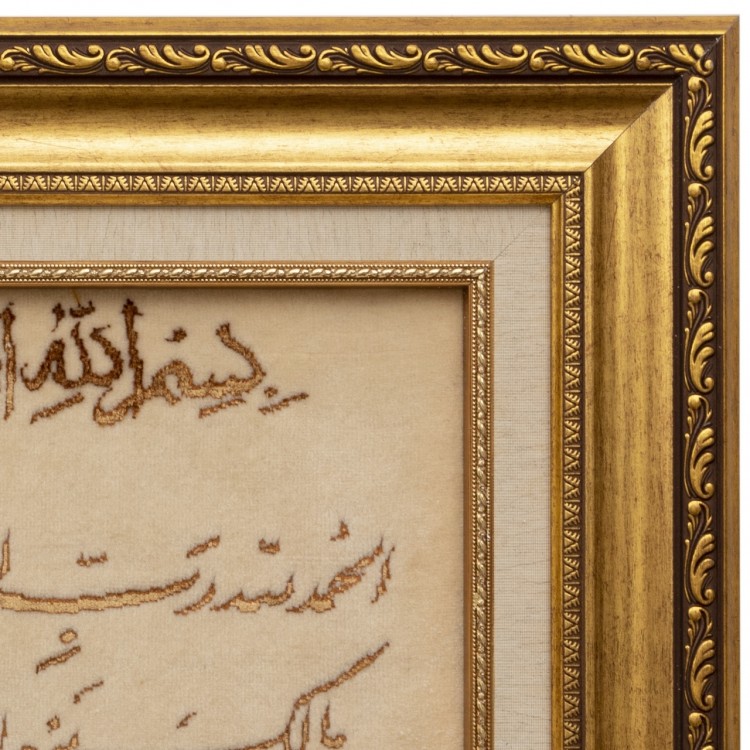 بسم الله
الحمد لله رب
مالك